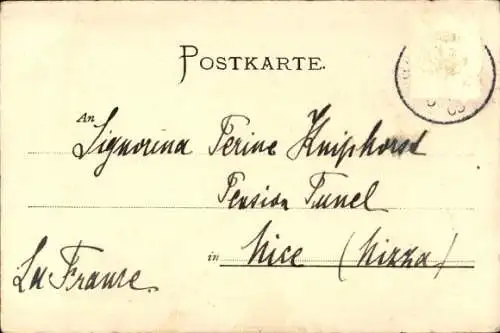 POSTKARTE.
An Signorina Terine Kniphorst
Pension Tunel
in Nice (Nizza)
La France.